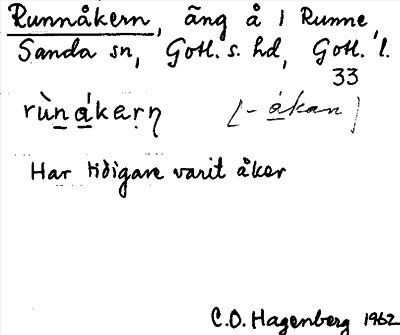 Runnåkern, äng å 1 Runne,
Sanda sn, Gotl. s. hd, Gotl. l.
33
rùn̲á̲kerṇ [-á̲kan]
Har tidigare varit åker
C.O. Hagenberg 1962